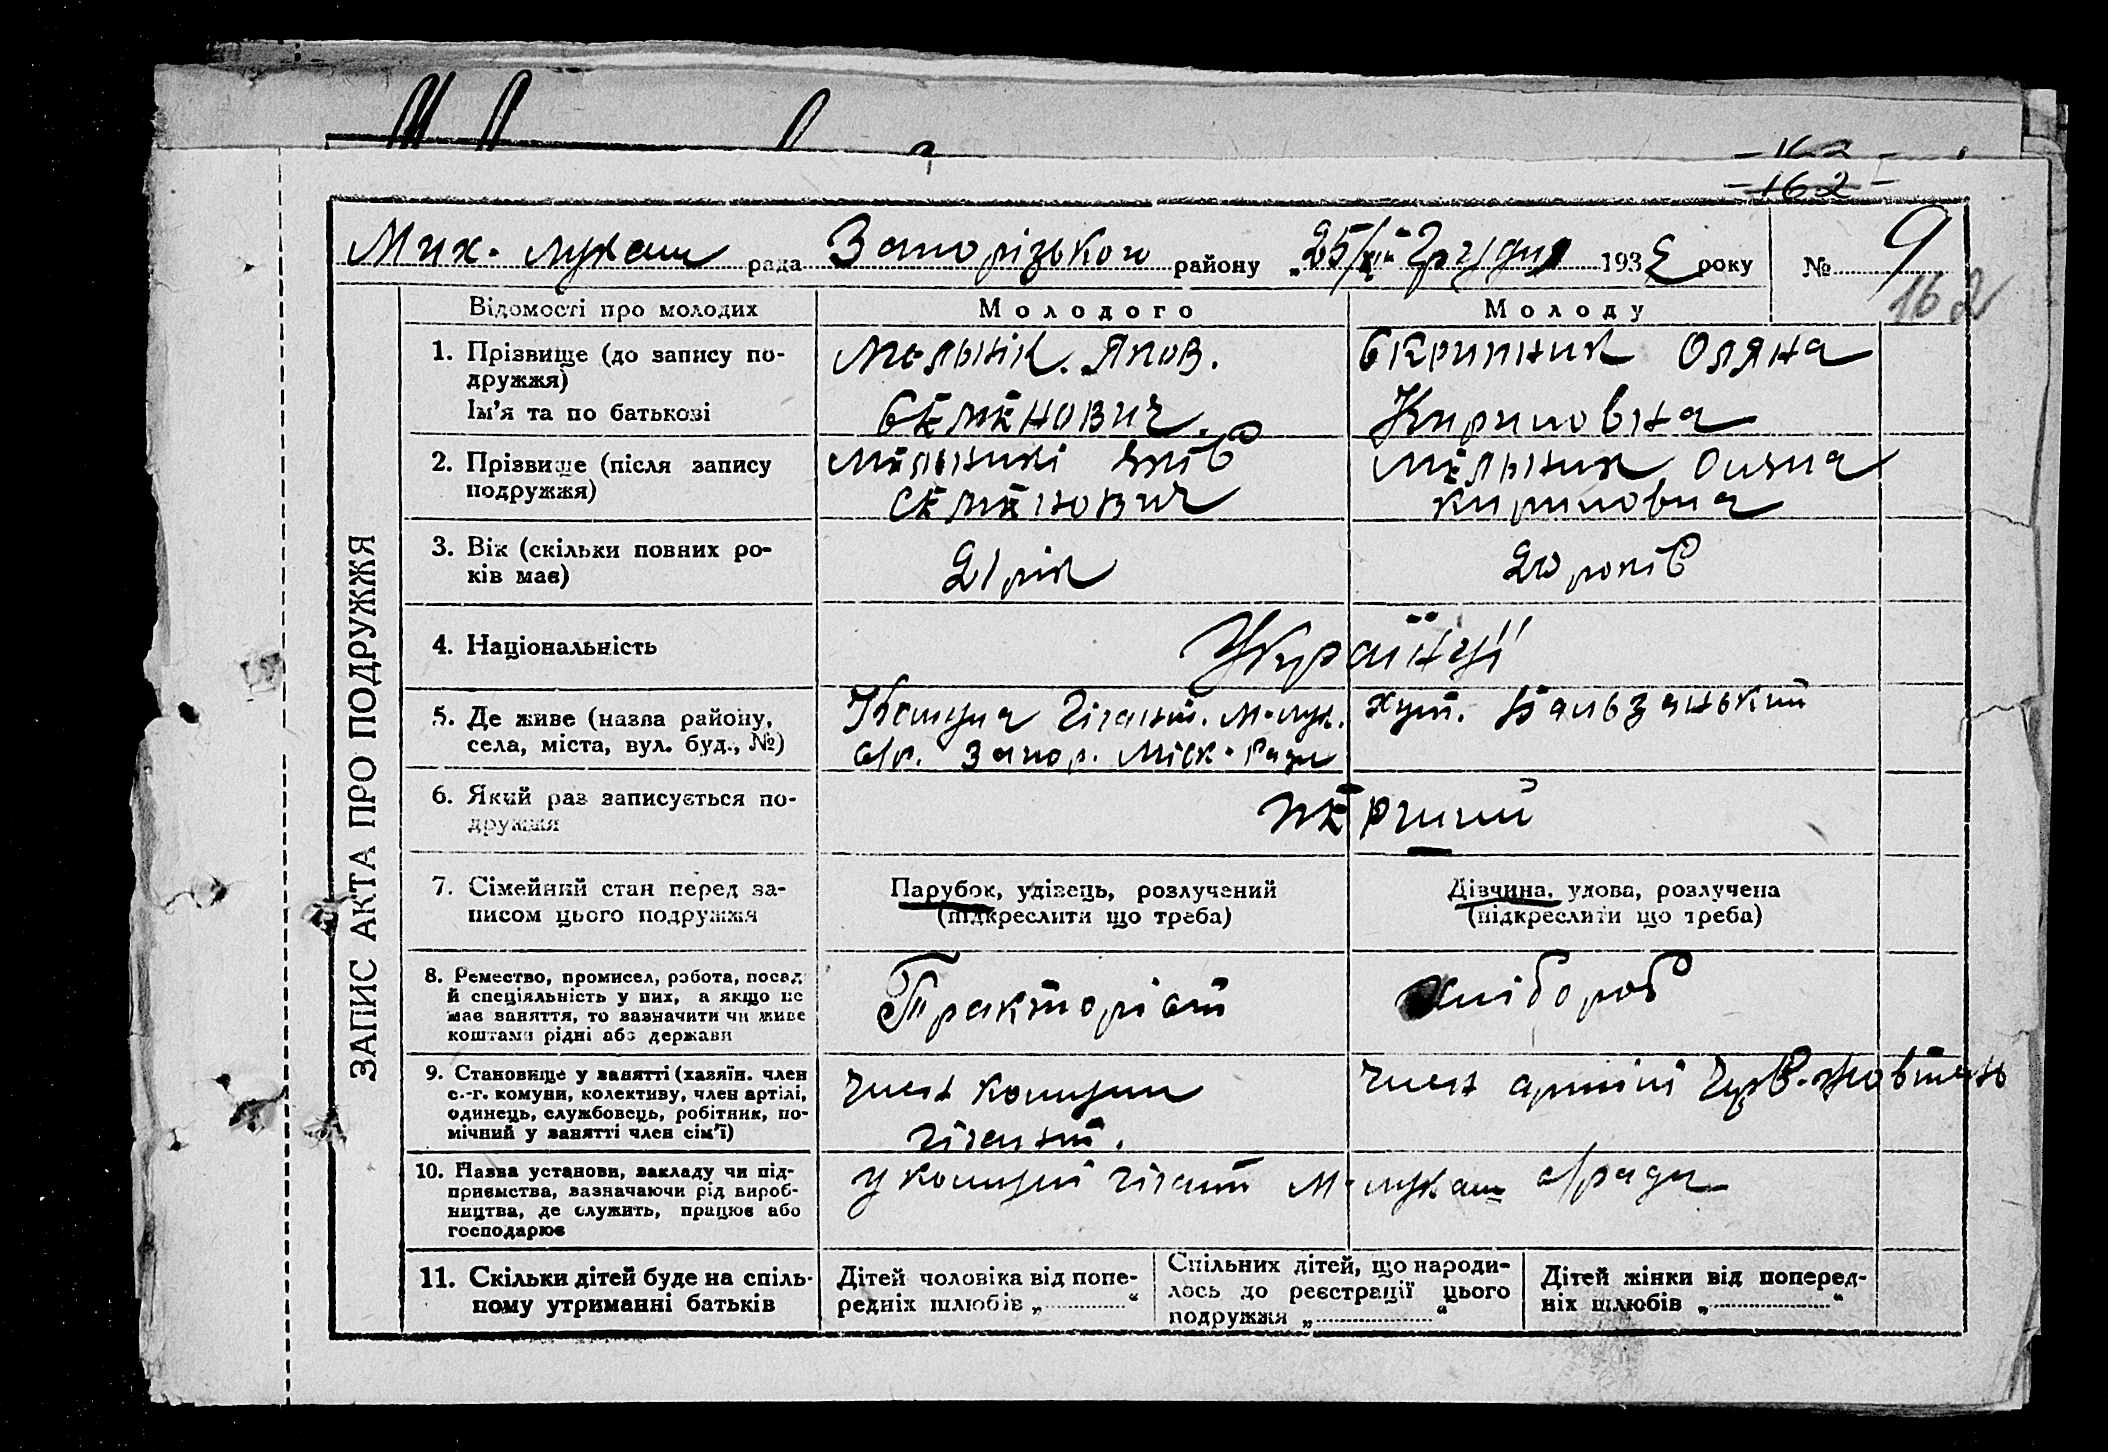 - 162 -
Мих. Лукаш рада Запорізького району „25/XII Грудня 1932 року № 9
162
ЗАПИС АКТА ПРО ПОДРУЖЖЯ
Відомості про молодих Молодого Молоду
1. Прізвище (до запису по- Мельнік. Яков. Скрипник Оляна
дружжя)
Ім'я та по батькові Семенович. Кириловна
2. Прізвище (після запису Мельник Яків Мельник Оляна
подружжя) Семенович Кириловна
3. Вік (скільки повних ро- 21 рік 20 років
ків має)
4. Національність Українці
5. Де живе (назва району, Комуна Гігант. М-лук. хут. Бальзанький
села, міста, вул. буд., №) с/р. Запор. Міск-Ради
6. Який раз записується по- перший
дружжя
7. Сімейний стан перед за- Парубок, удівець, розлучений Дівчина, удова, розлучена
писом цього подружжя (підкреслити що треба) (підкреслити що треба)
8. Ремество, промисел, робота, посад
й спеціяльність у них, а якщо не Тракторіст хлібороб
має заняття, то зазначити чи живе
коштами рідні або держави
9. Становище у занятті (хазяїн. член член комуни член артілі Черв.
с.-г. комуни, колективу, член артілі,
одинець, службовець, робітник, по- гігант.
мічний у занятті член сім'ї)
10. Назва установи, закладу чи під- у комуні гігант М-лукаш с/ради
приємства, зазначаючи рід вироб-
ництва, де служить, працює або
господарює
11. Скільки дітей буде на спіль- Дітей чоловіка від попе- Спільних дітей, що народи- Дітей жінки від поперед-
ному утриманні батьків редніх шлюбів „ “ лось до реєстрації цього ніх шлюбів „ “
подружжя „ “